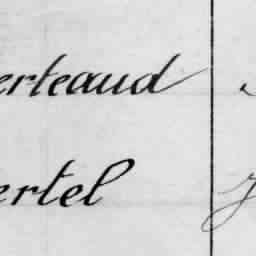 erteaud
ertel